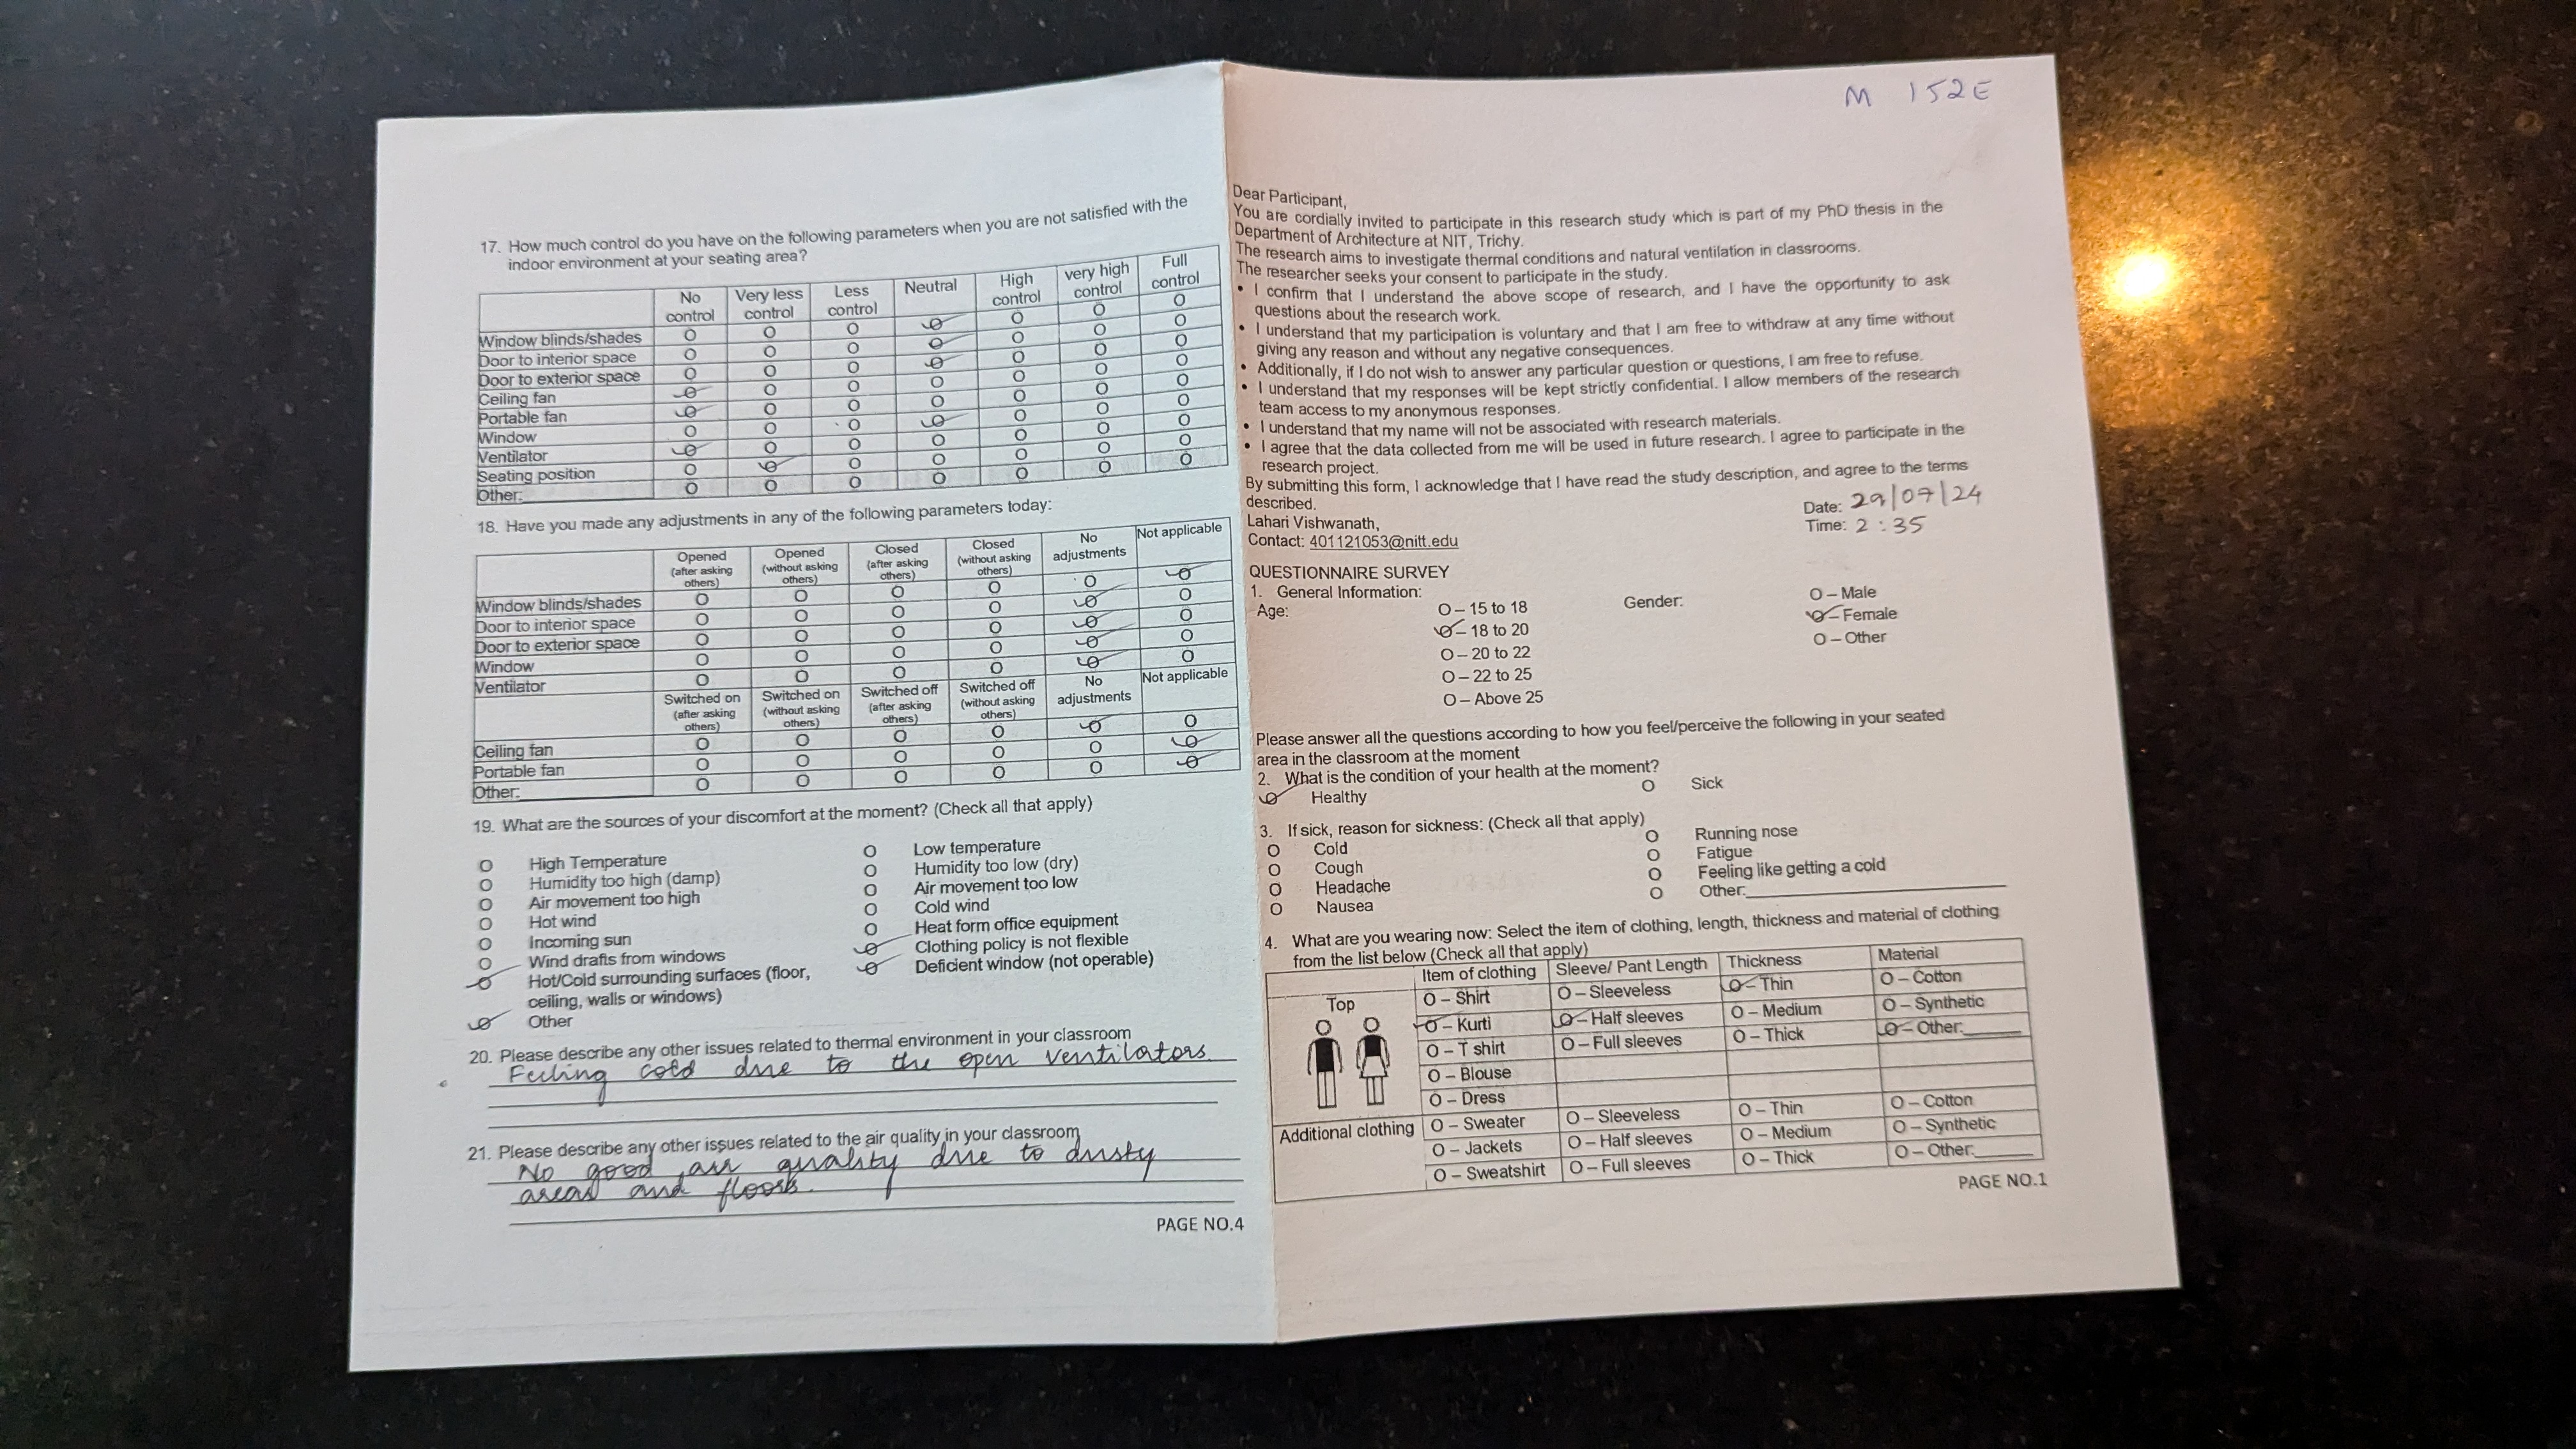 17. How much control do you have on the following parameters when you are not satisfied with the
indoor environment at your seating area?
No control Very less control Less control Neutral High control very high control Full control
Window blinds/shades O O O O O O O
Door to interior space O O O O O O O
Door to exterior space O O O O O O O
Ceiling fan O O O O O O O
Portable fan O O O O O O O
Window O O O O O O O
Ventilator O O O O O O O
Seating position O O O O O O O
Other: O O O O O O O
18. Have you made any adjustments in any of the following parameters today:
Opened (after asking others) Opened (without asking others) Closed (after asking others) Closed (without asking others) No adjustments Not applicable
Window blinds/shades O O O O O O
Door to interior space O O O O O O
Door to exterior space O O O O O O
Window O O O O O O
Ventilator O O O O O O
Switched on (after asking others) Switched on (without asking others) Switched off (after asking others) Switched off (without asking others) No adjustments Not applicable
Ceiling fan O O O O O O
Portable fan O O O O O O
Other: O O O O O O
19. What are the sources of your discomfort at the moment? (Check all that apply)
O High Temperature O Low temperature
O Humidity too high (damp) O Humidity too low (dry)
O Air movement too high O Air movement too low
O Hot wind O Cold wind
O Incoming sun O Heat form office equipment
O Wind drafts from windows O Clothing policy is not flexible
O Hot/Cold surrounding surfaces (floor, O Deficient window (not operable)
ceiling, walls or windows)
O Other
20. Please describe any other issues related to thermal environment in your classroom
Feeling cold due to the open ventilators
21. Please describe any other issues related to the air quality in your classroom
No good air quality due to dusty
areas and floors.
PAGE NO.4
M 152E
Dear Participant,
You are cordially invited to participate in this research study which is part of my PhD thesis in the
Department of Architecture at NIT, Trichy.
The research aims to investigate thermal conditions and natural ventilation in classrooms.
The researcher seeks your consent to participate in the study.
• I confirm that I understand the above scope of research, and I have the opportunity to ask
questions about the research work.
• I understand that my participation is voluntary and that I am free to withdraw at any time without
giving any reason and without any negative consequences.
• Additionally, if I do not wish to answer any particular question or questions, I am free to refuse.
• I understand that my responses will be kept strictly confidential. I allow members of the research
team access to my anonymous responses.
• I understand that my name will not be associated with research materials.
• I agree that the data collected from me will be used in future research. I agree to participate in the
research project.
By submitting this form, I acknowledge that I have read the study description, and agree to the terms
described.
Date: 29/07/24
Lahari Vishwanath,
Time: 2:35
Contact: 401121053@nitt.edu
QUESTIONNAIRE SURVEY
1. General Information:
Age: O – 15 to 18 Gender: O – Male
O – 18 to 20 O – Female
O – 20 to 22 O – Other
O – 22 to 25
O – Above 25
Please answer all the questions according to how you feel/perceive the following in your seated
area in the classroom at the moment
2. What is the condition of your health at the moment?
O Healthy O Sick
3. If sick, reason for sickness: (Check all that apply)
O Cold O Running nose
O Cough O Fatigue
O Headache O Feeling like getting a cold
O Nausea O Other:
4. What are you wearing now: Select the item of clothing, length, thickness and material of clothing
from the list below (Check all that apply)
Item of clothing Sleeve/ Pant Length Thickness Material
Top O – Shirt O – Sleeveless O – Thin O – Cotton
O – Kurti O – Half sleeves O – Medium O – Synthetic
O – T shirt O – Full sleeves O – Thick O – Other:
O – Blouse
O – Dress
Additional clothing O – Sweater O – Sleeveless O – Thin O – Cotton
O – Jackets O – Half sleeves O – Medium O – Synthetic
O – Sweatshirt O – Full sleeves O – Thick O – Other:
PAGE NO.1